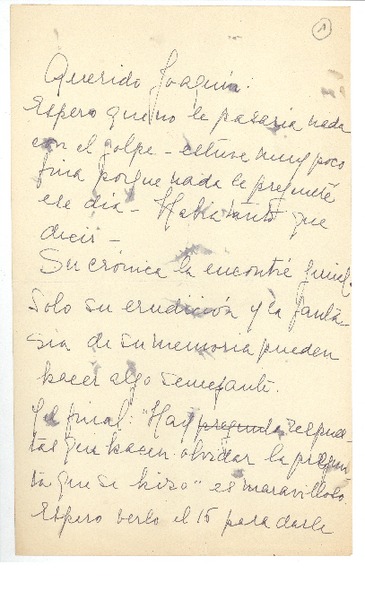 1
Querido Joaquín:
Espero que no le pasaría nada
con el golpe - estuve muy poco
fina porque nada le pregunté
ese día - Había tanto que
decir -
Su crónica la encontré genial.
Solo su erudición y la fanta-
sía de su memoria pueden
hacer algo semejante.
Y el final: "Hay pregunta respues-
tas que hacen olvidar la pregun-
ta que se hizo" es maravilloso.
Espero verlo el 15 para darle